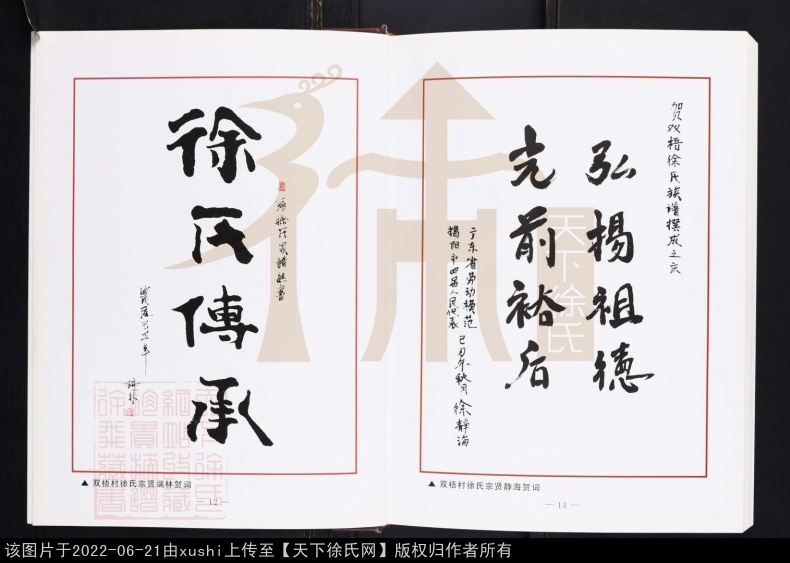 徐氏傳承
▲ 双梧村徐氏宗贤端林贺词
— 12 —
贺双梧徐氏族谱撰成之庆
弘揚祖德
光前裕后
广东省劳动模范
揭阳市四届人民代表
己丑年秋月 徐静海
▲ 双梧村徐氏宗贤静海贺词
— 13 —
天下徐氏
该图片于2022-06-21由xushi上传至【天下徐氏网】版权归作者所有